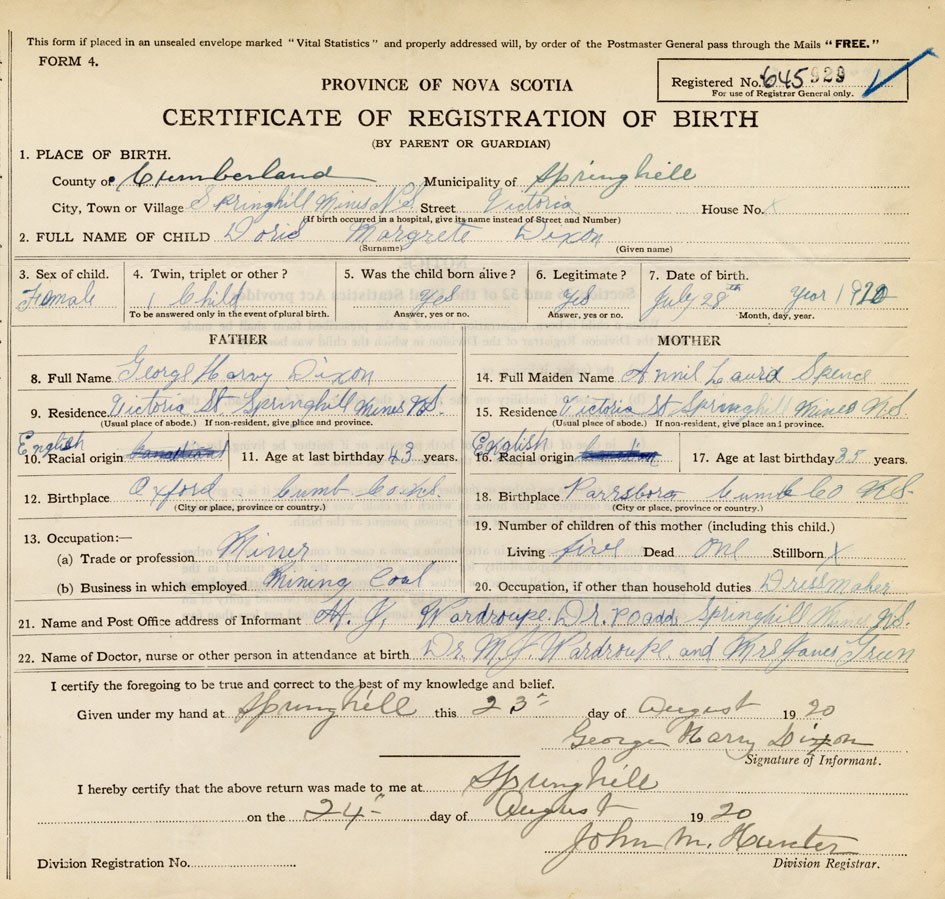 This form if placed in an unsealed envelope marked "Vital Statistics" and properly addressed will, by order of the Postmaster General pass through the Mails "FREE."
FORM 4.
Registered No. 645929
For use of Registrar General only.
PROVINCE OF NOVA SCOTIA
CERTIFICATE OF REGISTRATION OF BIRTH
(BY PARENT OR GUARDIAN)
1. PLACE OF BIRTH.
County of Cumberland Municipality of Springhill
City, Town or Village Springhill Mines N.S Street Victoria House No. X
(If birth occurred in a hospital, give its name instead of Street and Number)
2. FULL NAME OF CHILD Doris Margrete Dixon
(Surname) (Given name)
3. Sex of child. 4. Twin, triplet or other? 5. Was the child born alive? 6. Legitimate? 7. Date of birth.
Female 1 Child Yes Yes July 28th Year 1920
To be answered only in the event of plural birth. Answer, yes or no. Answer, yes or no. Month, day, year.
FATHER MOTHER
8. Full Name George Harvy Dixon 14. Full Maiden Name Annie Laura Spence
9. Residence Victoria St. Springhill Mines N.S. 15. Residence Victoria St Springhill Mines N.S.
(Usual place of abode.) If non-resident, give place and province. (Usual place of abode.) If non-resident, give place and province.
English English
10. Racial origin 11. Age at last birthday 43 years. 16. Racial origin 17. Age at last birthday 35 years.
12. Birthplace Oxford Cumb Co N.S. 18. Birthplace Parrsboro Cumb Co N.S.
(City or place, province or country.) (City or place, province or country.)
13. Occupation:— 19. Number of children of this mother (including this child.)
(a) Trade or profession Minner Living five Dead One Stillborn X
(b) Business in which employed Mining Coal 20. Occupation, if other than household duties Dressmaker
21. Name and Post Office address of Informant Wardroupe. Dr. Springhill Mines N.S.
22. Name of Doctor, nurse or other person in attendance at birth Dr. M. J. Wardroupe and Mrs James Green
I certify the foregoing to be true and correct to the best of my knowledge and belief.
Given under my hand at Springhill this 23 day of August 1920
George Harry Dixon
Signature of Informant.
I hereby certify that the above return was made to me at Springhill
on the 24 day of August 1920
John M. Hunter
Division Registration No. Division Registrar.